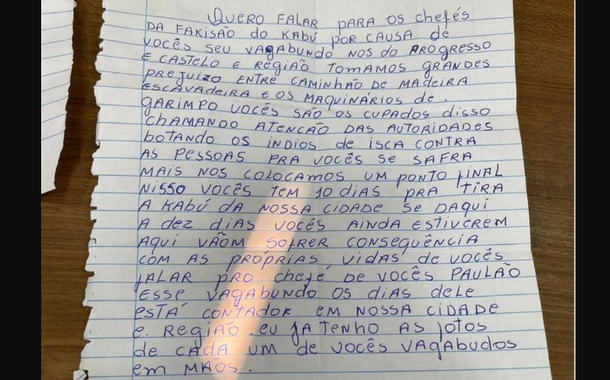 QUERO FALAR PARA OS chefés
DA FAKISÃO do KABÚ POR CAUSA de
VOCÊS SEU VAGABUNDO NOS do PROGRESSO
E CASTELO E REGIÃO TOMAMOS GRANDES
PREJUIZO ENTRE CAMINHÃO DE MADEIRA
ESCAVADEIRA E OS MAQUINÁRIOS de.
GARIMPO VOCÊS SÃO OS CUPADOS DISSO
CHAMANDO ATENCÃO DAS AUTORIDADES
bOTANDO OS ÍNDIOS de ISCA CONTRA
AS PESSOAS PRA VOCÊS SE SAFRA
MAIS NOS COLOCAMOS UM PONTO FINAL
NISSO VOCÊS TEM 10 DIAS PRA TIRA
A KABÚ DA NOSSA CIDADE SE DAQUI
A DEZ DIAS VOCÊS AINDA ESTIVEREM
AQUI VÃOM SOFRER CONSEQUÊNCIA
COM AS PROPRIAS VIDAS DE VOCÊS
FALAR PRO chefé DE VOCÊS PAULÃO
ESSE VAGABUNDO OS DIAS DELE
ESTÁ CONTADOR EM NOSSA CIDADE
e REGIÃO. EU JA TENHO AS FOTOS
de CADA UM DE VOCÊS VAGABUDOS
em MÃOS.